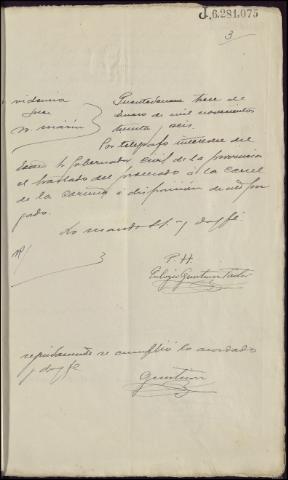 J.6.281.075
3
videncia
Juez
Sr Marin
Puentedeume trece de
Enero de mil novecientos
treinta y seis.
Por telegrafo interesese del
Señor Gobernador Civil de la provincia
el traslado del procesado a la carcel
de la coruña a disposicion de este Juz
gado.
Lo mando SSª y doy fé.
P.H.
seguidamente se cumplió lo acordado
y doy fé